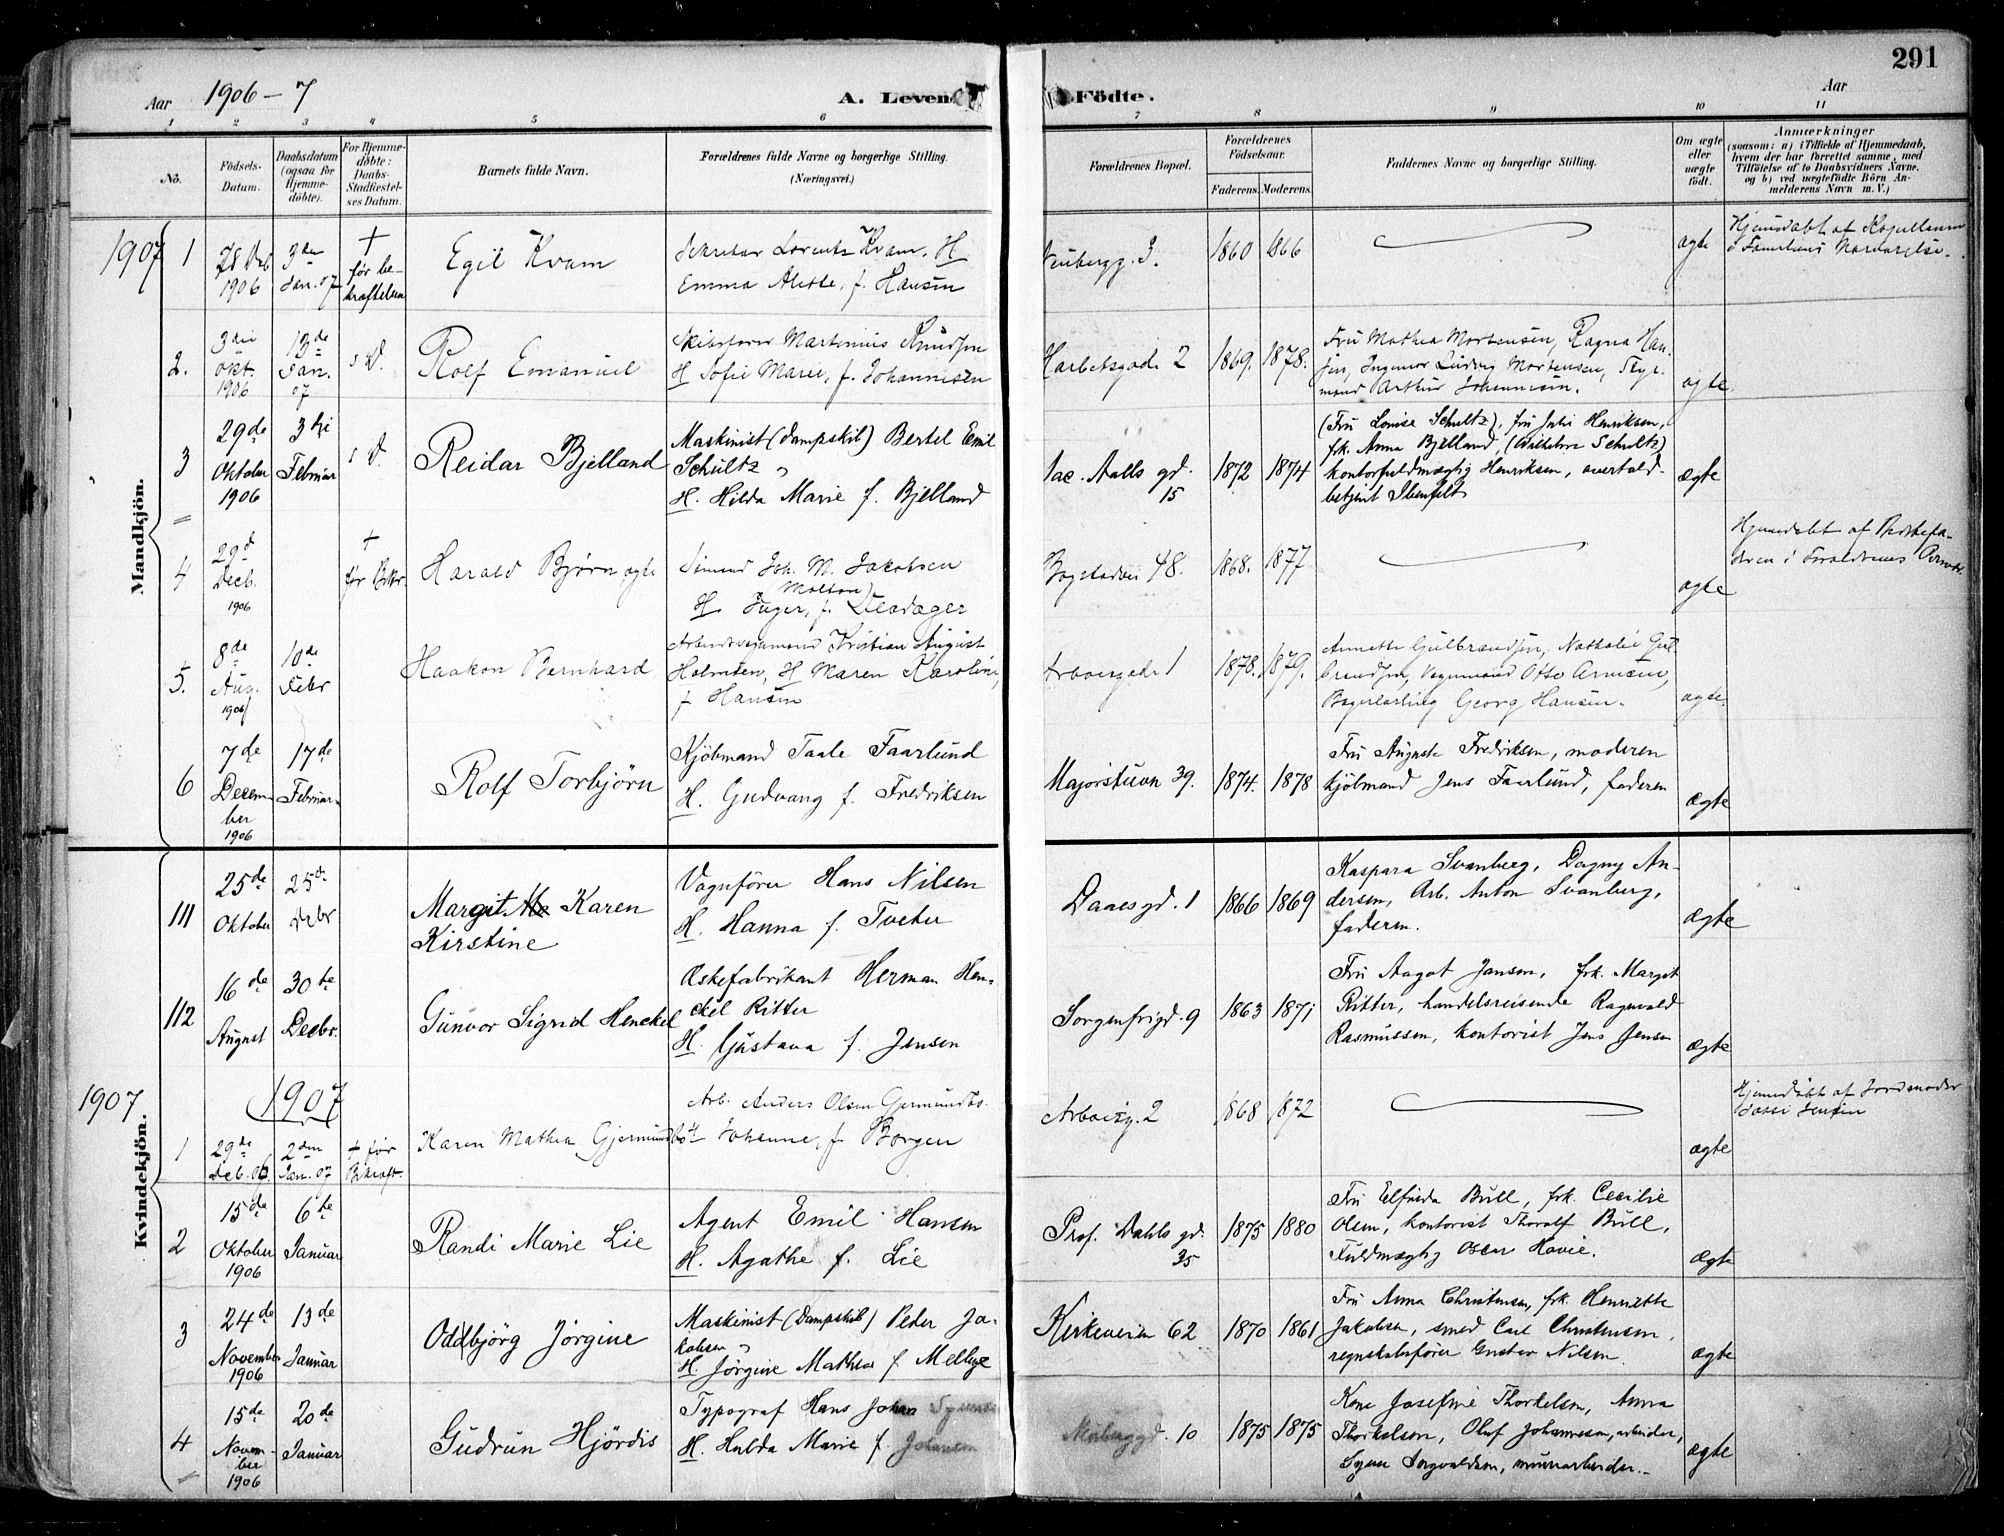 291
Aar 1906-7
A. Leven
Födte.
Aar
1 2 3 4 5 6 7 8 9 10 11
No.
Födsels-
Datum.
Daabsdatum
(ogsaa for
Hjemme-
döbte).
For Hjemme-
döbte:
Daabs-
Stadfæstel-
ses Datum.
Barnets fulde Navn.
Forældrenes fulde Navne og borgerlige Stilling.
(Næringsvei.)
Forældrenes Bopæl.
Forældrenes
Födselsaar.
Faderens. Moderens.
Faddernes Navne og borgerlige Stilling.
Om ægte
eller
uægte
födt.
Anmærkninger
(saasom: a) i Tilfælde af Hjemmedaab,
hvem der har forrettet samme, med
Tilföielse af to Daabsvidners Navne,
og b) ved uægtefödte Börn An-
melderens Navn m. V.)
Mandkjön.
1907
1
28 Deb
1906
3de
Jan. 07
+
før be-
kræftelsen
Egil Kvam
Sekretær Lorentz Kvam. H
Emma Alette, f. Hansen
Neubergg. 3.
1860 1866
ægte
Hjemdøbt af
i Familiens Nærværelse.
2.
3die
Okt.
1906
13de
Jan.
07
s D.
Rolf Emanuel
Skibsfører Martinius Knudsen
H Sofie Marie, f. Johannesen
Harbitzgade 2
1869. 1878.
Fru Mathea Mortensen, Ragna Han-
sen, Ingeniør Ludvig Mortensen, Styr-
mand Arthur Johannesen.
ægte
3
29de
Oktober
1906
3die
Februar
s D.
Reidar Bjelland
Maskinist (Dampskib) Bertel Emil
Schultz
H. Hilda Marie f. Bjelland
Jac. Aalls gd.
15
1872 1874
(Fru Louise Schultz), fru Julie Henriksen,
frk. Anna Bjelland, (Wilhelm Schultz)
kontorfuldmægtig Henriksen, overtold-
betjent Ibenfelt
ægte
4
29d
Decb.
1906
+
før Bkr.
Harald Bjørn ægte
Joh. M. Jakobsen
H Inger, f.
Bogstadvei 48.
1868. 1877
ægte
Hjemmedøbt af
dren i Forældrenes
5.
8de
Aug.
1906
10de
Febr
Haakon Bernhard
Kristian August
Holmsen, H Maren Karoline,
f Hansen
Arbeiergade 1
1878. 1879.
Annette Gulbrandsen, Nathalie Gul-
brandsen, Vognmand Otto Arnesen,
Bagerlærling Georg Hansen.
ægte.
6
7de
Decem-
ber
1906
17de
Februar
Rolf Torbjörn
Kjöbmand Taale Faarlund
H. Gudvang f. Fredriksen
Majorstuvn 39.
1874. 1878
Fru Augusta Fredriksen, moderen
kjöbmand Jens Faarlund, faderen
ægte
Kvindekjön.
111
25de
Oktober
25de
Debr
Margit Karen
Kirstine
Vognfører Hans Nilsen
H. Hanna f. Tveter
Daaes gd. 1
1866 1869
Kaspara Svanberg, Dagny An-
dersen, Arb. Anton Svanberg,
faderen.
ægte
112
16de
August
30te
Decbr.
Gunvor Sigrid Henckel
Æskefabrikant Herman Hen-
ckel Ritter
H. Gustava f. Jensen
Sorgenfrigd. 9
1863 1871
Fru Aagot Jansen, frk. Margit
Ritter, handelsreisende Ragnvald
Rasmussen, kontorist Jens Jensen
ægte
1907
1907
1
29de
Deb. 06
2den
Jan. 07
+ før
Bekræft.
Karen Mathea Gjermundbo
Arb. Anders Olsen Gjermundbo.
H Johanne, f. Borgen
Arbeig. 2
1868 1872
ægte
Hjemdøbt af Jordmoder
Jensen
2
15de
Oktober
1906
6te
Januar
Randi Marie Lie
Agent Emil Hansen
H. Agathe f. Lie
Prof. Dahls gd.
35
1875 1880
Fru Elfrida Bull, frk. Cecilie
Olsen, kontorist Thoralf Bull,
Fuldmægtig Oscar Hovie.
ægte
3
24de
November
1906
13de
Januar
Oddbjörg Jörgine
Maskinist (Dampskib) Peder Ja-
kobsen
H. Jörgine Mathea f. Mellbye
Kirkeveien 62
1870 1861
Fru Anna Christensen, frk. Henriette
Jakobsen, smed Carl Christensen,
regnskabsfører Gustav Nilsen.
ægte
4
15de
Novem-
ber
1906
20de
Januar
Gudrun Hjördis
Typograf Hans Johan
H. Hulda Marie f. Johansen
10
1875 1875
Kone Josefine Thorkelsen, Anna
Thorkelsen, Oluf Johannesen, arbeider,
Syver Ingvaldsen, murarbeider.
ægte